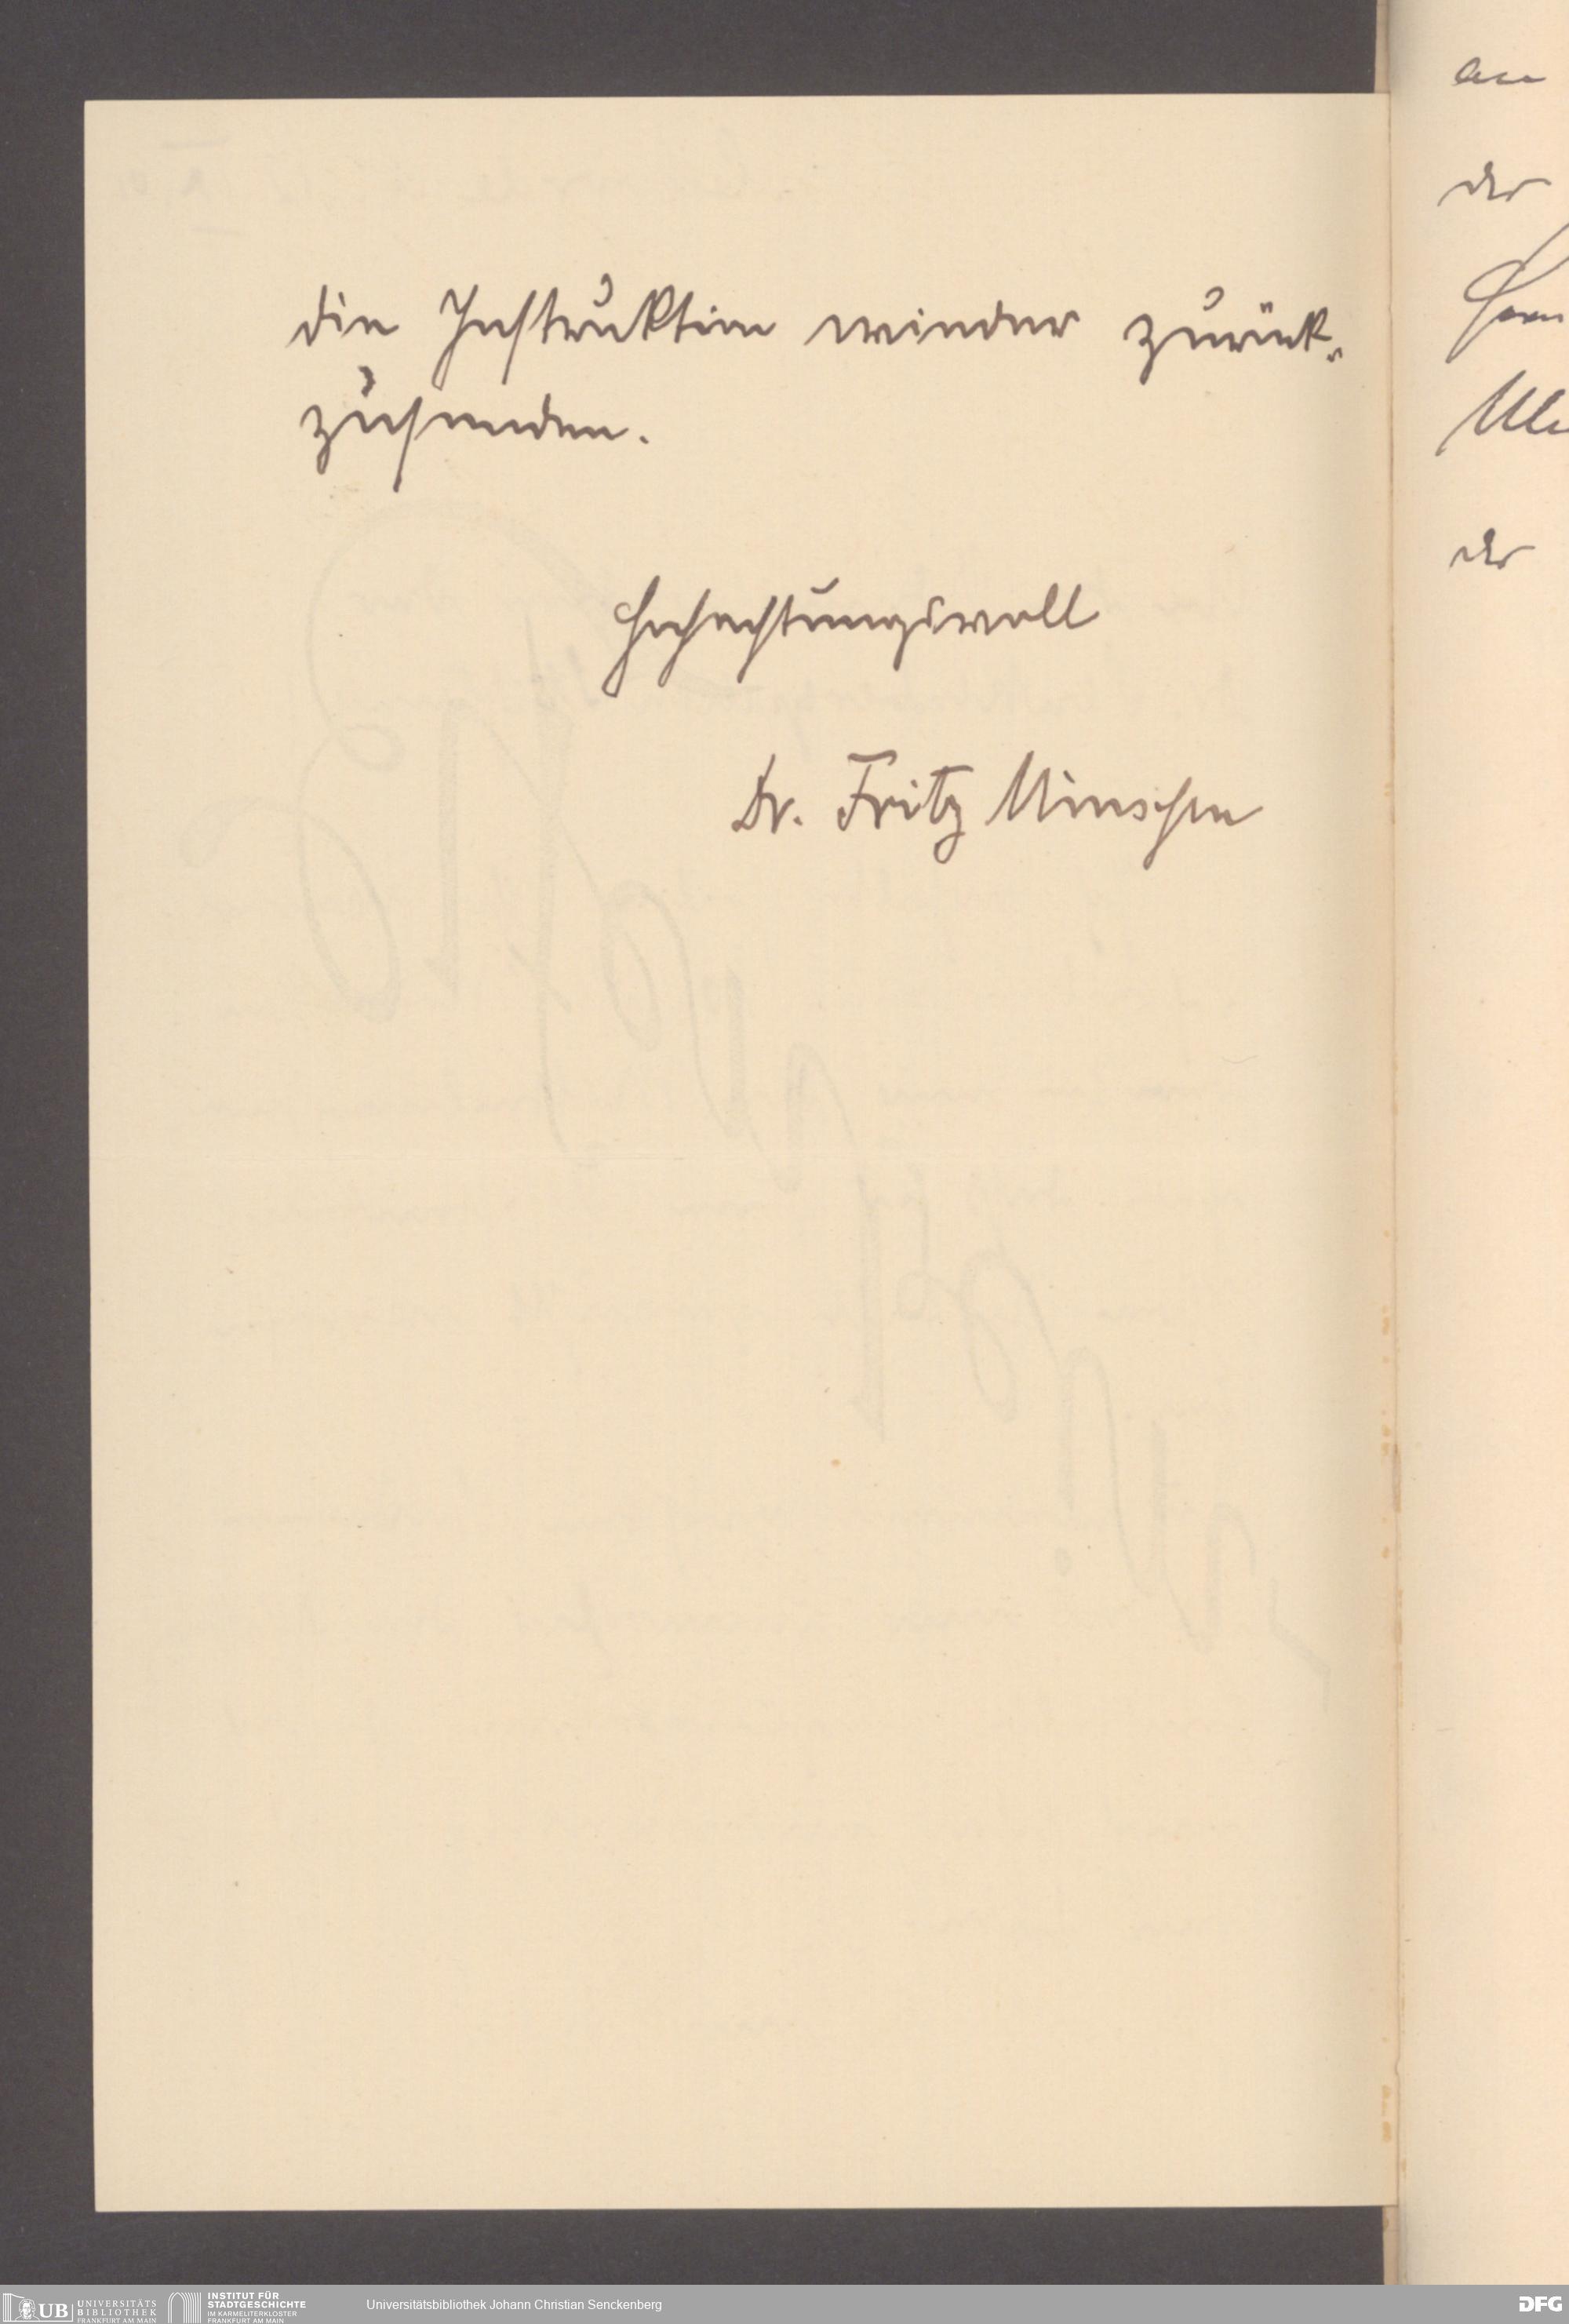 die Instruktion wieder zurück-
zusenden.
Hochachtungsvoll
Dr. Fritz
der
der
UB UNIVERSITÄTS BIBLIOTHEK FRANKFURT AM MAIN
INSTITUT FÜR STADTGESCHICHTE IM KARMELITERKLOSTER FRANKFURT AM MAIN
Universitätsbibliothek Johann Christian Senckenberg
DFG